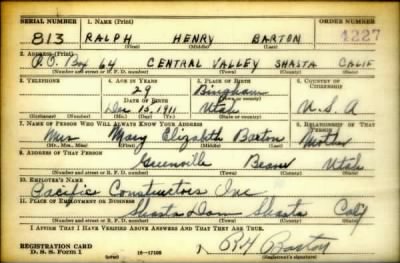 SERIAL NUMBER 1. NAME (Print) ORDER NUMBER
813 RALPH HENRY BARTON 4227
(First) (Middle) (Last)
2. ADDRESS (Print)
P.O. Box 64 CENTRAL VALLEY SHASTA CALIF
(Number and street or R. F. D. number) (Town) (County) (State)
3. TELEPHONE 4. AGE IN YEARS 5. PLACE OF BIRTH 6. COUNTRY OF CITIZENSHIP
29 Bingham
DATE OF BIRTH (Town or county)
Dec. 15, 1911 Utah U.S.A
(Exchange) (Number) (Mo.) (Day) (Yr.) (State or country)
7. NAME OF PERSON WHO WILL ALWAYS KNOW YOUR ADDRESS 8. RELATIONSHIP OF THAT PERSON
Mrs Mary Elizabeth Barton Mother
(Mr., Mrs., Miss) (First) (Middle) (Last)
9. ADDRESS OF THAT PERSON
Greenville Beaver Utah
(Number and street or R. F. D. number) (Town) (County) (State)
10. EMPLOYER'S NAME
Pacific Constructors Inc
11. PLACE OF EMPLOYMENT OR BUSINESS
Shasta Dam Shasta Calif
(Number and street or R. F. D. number) (Town) (County) (State)
I AFFIRM THAT I HAVE VERIFIED ABOVE ANSWERS AND THAT THEY ARE TRUE.
REGISTRATION CARD
D. S. S. Form 1 16—17105 RH Barton
(Registrant's signature)